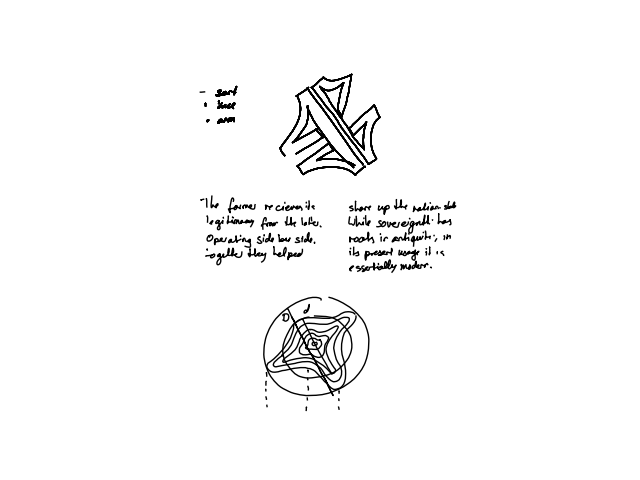 - sart
• knee
• arm
The former recieves its
legitimacy from the latter.
Operating side by side,
together they helped
shore up the nation state
While sovereignty has
roots in antiquity, in
its present usage it is
essentially modern.
D d